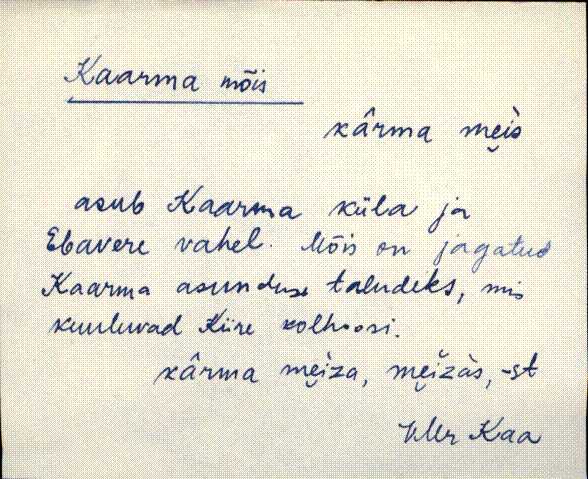 Kaarma mõis
kârma me̬i̬s̀
asub Kaarma küla ja
Ebavere vahel. Mõis on jagatud
Kaarma asunduse taludeks, mis
kuuluvad Kiire kolhoosi.
kârma me̬i̬za, me̬i̬zàs, -st
VMr Kaa